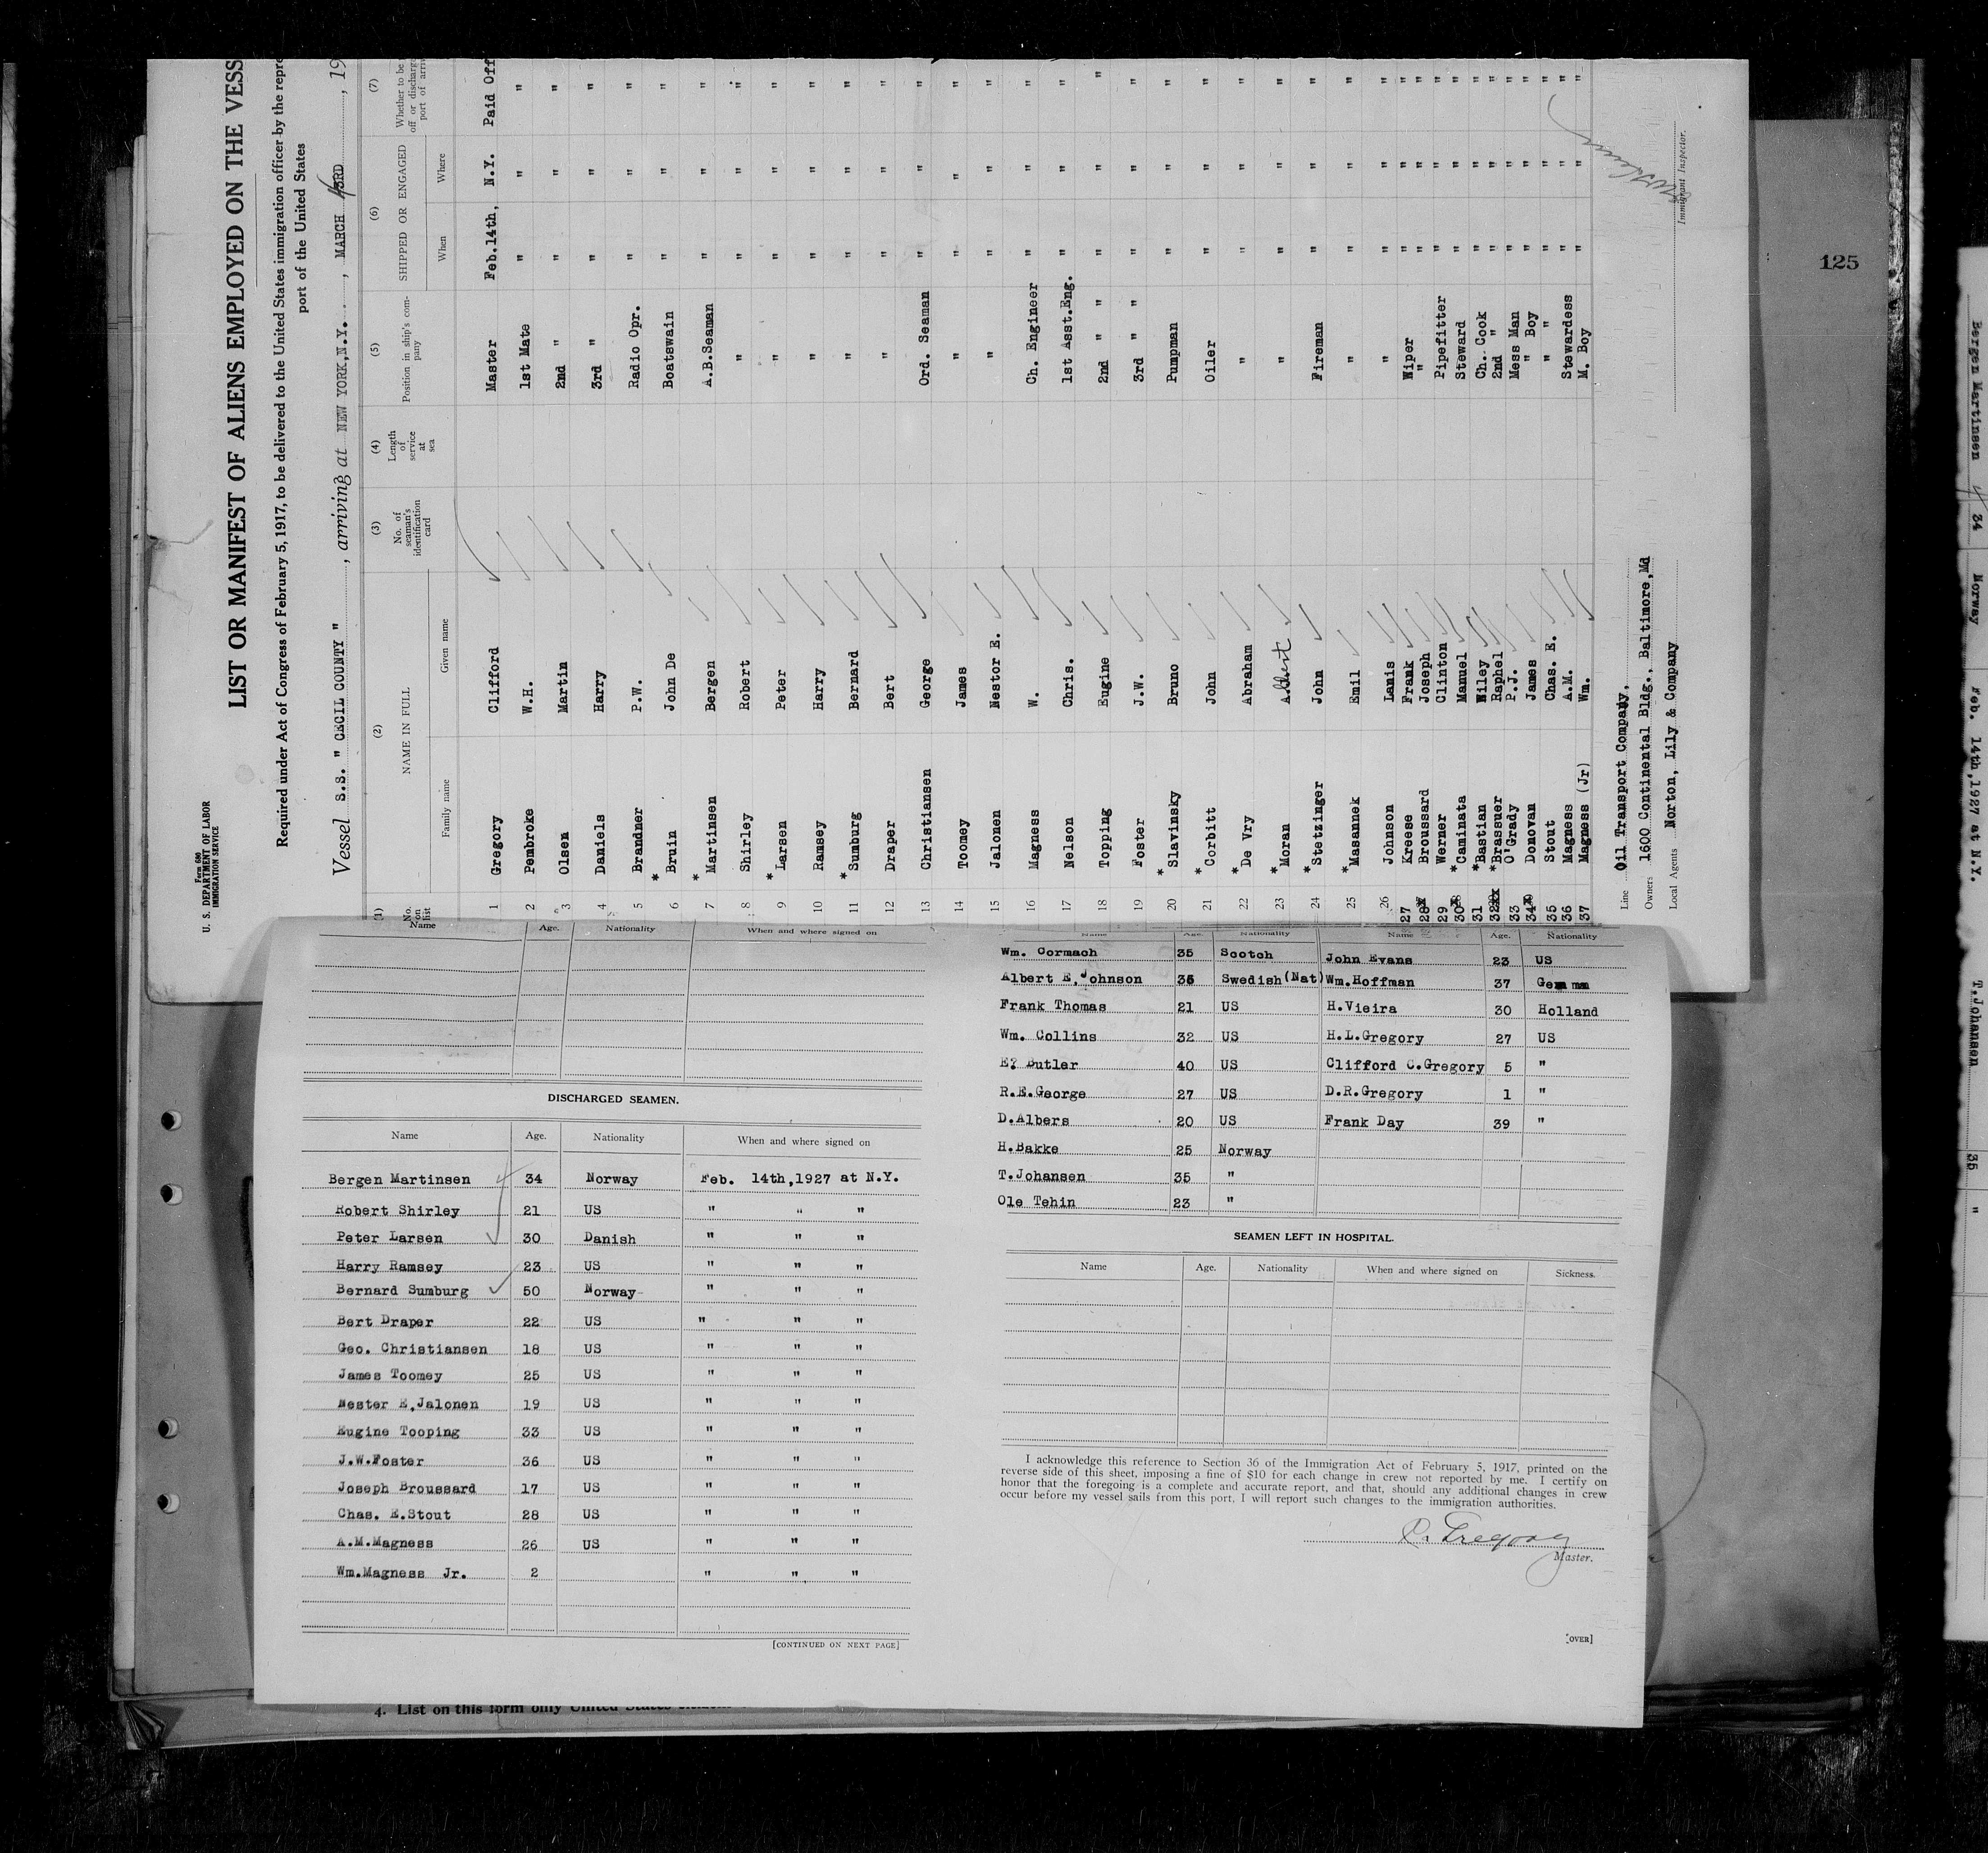 Form 680
U. S. DEPARTMENT OF LABOR
IMMIGRATION SERVICE
LIST OR MANIFEST OF ALIENS EMPLOYED ON THE VESS
Required under Act of Congress of February 5, 1917, to be delivered to the United States immigration officer by the repre
port of the United States
Vessel S.S. " CECIL COUNTY ", arriving at NEW YORK,N.Y. , MARCH 3RD , 19
(1) No. on list (2) NAME IN FULL Family name Given name (3) No. of seaman's identification card (4) Length of service at sea (5) Position in ship's company (6) SHIPPED OR ENGAGED When Where (7) Whether to be off or discharg port of arriv
1 Gregory Clifford Master Feb.14th, N.Y. Paid Off
2 Pembroke W.H. 1st Mate " " "
3 Olsen Martin 2nd " " " "
4 Daniels Harry 3rd " " " "
5 Brandner P.W. Radio Opr. " " "
6 * Bruin John De Boatswain " " "
7 * Martinsen Bergen A.B.Seaman " " "
8 Shirley Robert " " " "
9 * Larsen Peter " " " "
10 Ramsey Harry " " " "
11 * Sumburg Bernard " " " "
12 Draper Bert " " " "
13 Christiansen George Ord. Seaman " " "
14 Toomey James " " " "
15 Jalonen Nestor E. " " " "
16 Magness W. Ch. Engineer " " "
17 Nelson Chris. 1st Asst.Eng. " " "
18 Topping Eugine 2nd " " " " "
19 Foster J.W. 3rd " " " " "
20 * Slavinsky Bruno Pumpman " " "
21 * Corbitt John Oiler " " "
22 * De Vry Abraham " " " "
23 * Moran Albert " " " "
24 * Stetzinger John Fireman " " "
25 * Masannek Emil " " " "
26 Johnson Lanis " " " "
27 Kreese Frank Wiper " " "
28 Broussard Joseph " " " "
29 Werner Clinton Pipefitter " " "
30 * Caminata Manuel Steward " " "
31 * Bastian Wiley Ch. Cook " " "
32 * Brassuer Raphel 2nd " " " "
33 O'Grady P.J. Mess Man " " "
34 Donovan James " Boy " " "
35 Stout Chas. E. " " " " "
36 Magness A.M. Stewardess " " "
37 Magness (Jr) Wm. M. Boy " " "
Line Oil Transport Company,
Owners 1600 Continental Bldg., Baltimore,Md
Local Agents Norton, Lily & Company
Immigrant Inspector.
125
Name Age. Nationality When and where signed on
DISCHARGED SEAMEN.
Name Age. Nationality When and where signed on
Bergen Martinsen 34 Norway Feb. 14th,1927 at N.Y.
Robert Shirley 21 US " " "
Peter Larsen 30 Danish " " "
Harry Ramsey 23 US " " "
Bernard Sumburg 50 Norway " " "
Bert Draper 22 US " " "
Geo. Christiansen 18 US " " "
James Toomey 25 US " " "
Nester E,Jalonen 19 US " " "
Eugine Tooping 33 US " " "
J.W.Foster 36 US " " "
Joseph Broussard 17 US " " "
Chas. E.Stout 28 US " " "
A.M.Magness 26 US " " "
Wm.Magness Jr. 2 " " "
[CONTINUED ON NEXT PAGE]
Name Age. Nationality Name Age. Nationality
Wm. Cormach 35 Scotch John Evans 23 US
Albert E,Johnson 36 Swedish(Nat) Wm.Hoffman 37
Frank Thomas 21 US H.Vieira 30 Holland
Wm. Collins 32 US H.L.Gregory 27 US
E? Butler 40 US Clifford C.Gregory 5 "
R.E.George 27 US D.R.Gregory 1 "
D.Albers 20 US Frank Day 39 "
H.Bakke 25 Norway
T.Johansen 35 "
Ole Tehin 23 "
SEAMEN LEFT IN HOSPITAL.
Name Age. Nationality When and where signed on Sickness.
I acknowledge this reference to Section 36 of the Immigration Act of February 5, 1917, printed on the
reverse side of this sheet, imposing a fine of $10 for each change in crew not reported by me. I certify on
honor that the foregoing is a complete and accurate report, and that, should any additional changes in crew
occur before my vessel sails from this port, I will report such changes to the immigration authorities.
C. Gregory
Master.
[OVER]
4. List on this form only United States
Bergen Martinsen 34 Norway Feb. 14th,1927 at N.Y. T.Johansen 35 "